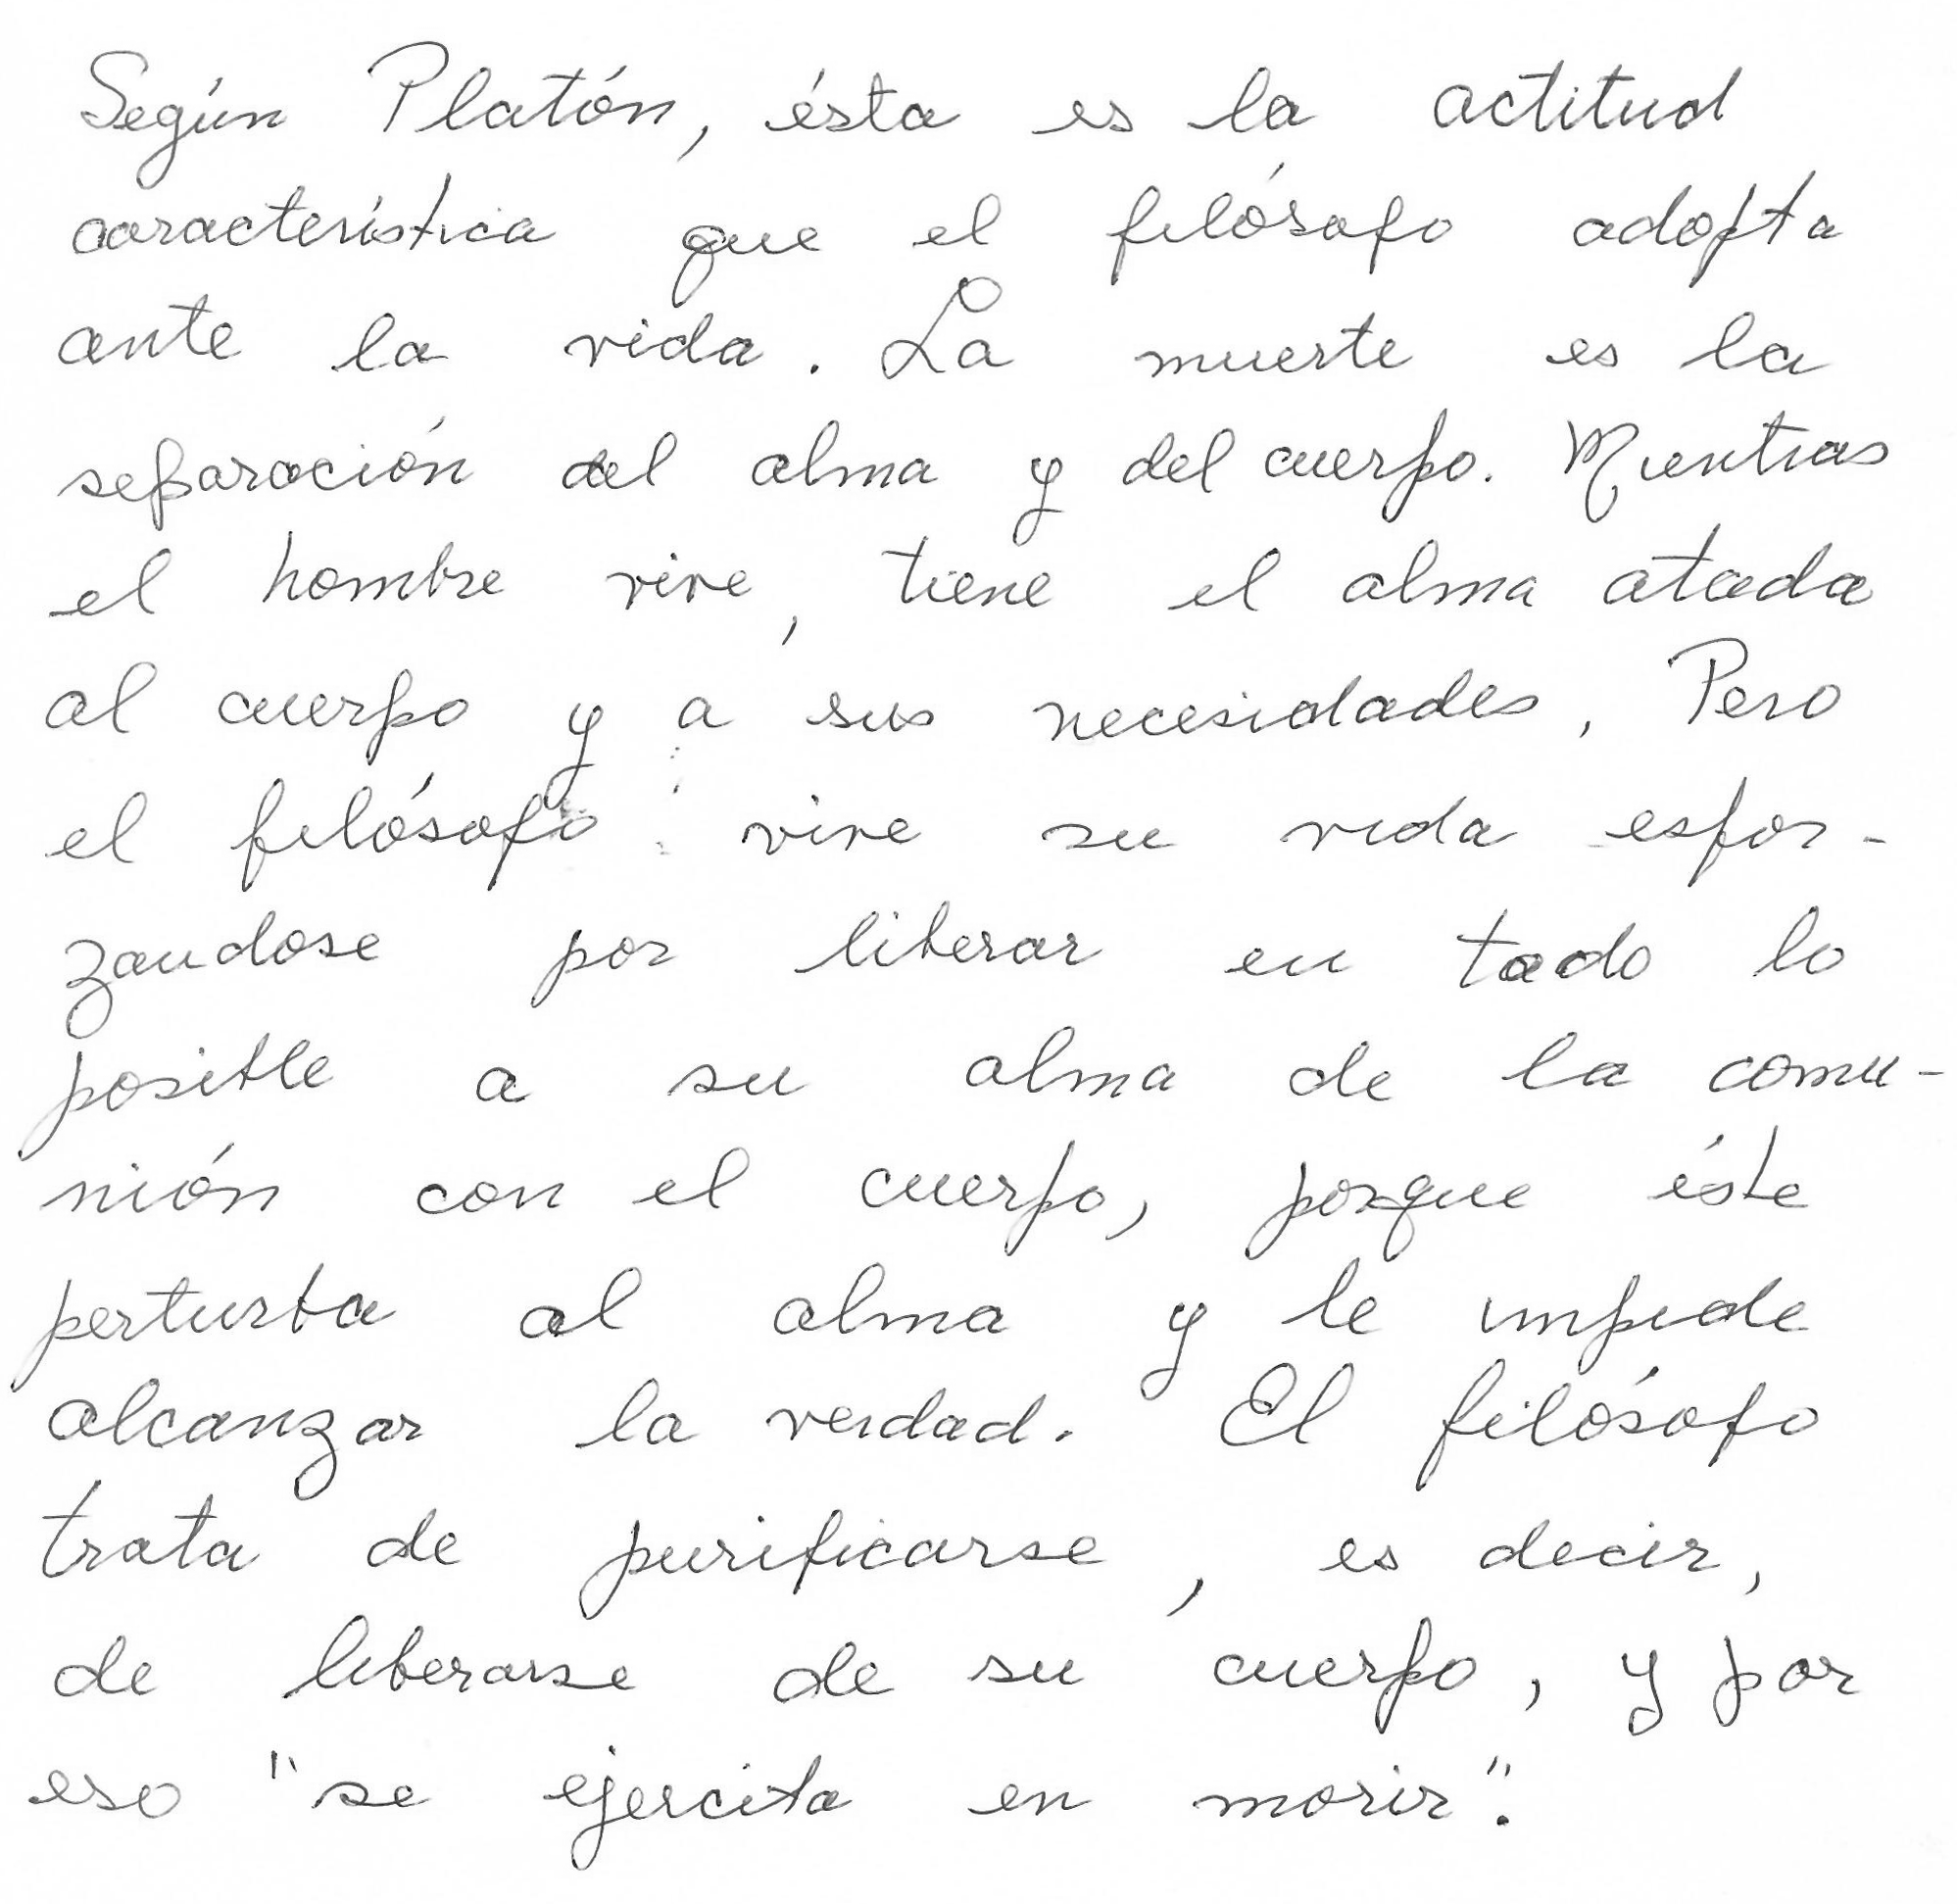 Según Platón, ésta es la actitud
característica que el filósofo adopta
ante la vida. La muerte es la
separación del alma y del cuerpo. Mientras
el hombre vive, tiene el alma atada
al cuerpo y a sus necesidades. Pero
el filósofo vive su vida esfor-
zandose por liberar en todo lo
posible a su alma de la comu-
nión con el cuerpo, porque éste
perturba al alma y le impide
alcanzar la verdad. El filósofo
trata de purificarse, es decir,
de liberarse de su cuerpo, y por
eso "se ejercita en morir".